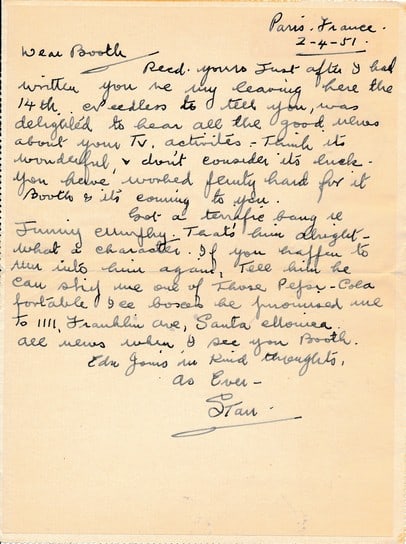 Paris. France.
2-4-51.
Dear Booth
Recd. yours Just after I had
written you re my leaving here the
14th. Needless to tell you, was
delighted to hear all the good news
about your Tv. activites - Think its
wonderful, & don't consider its luck.
You have worked plenty hard for it
Booth & its coming to you.
Got a terrific bang re
Jimmy Murphy. That's him alright -
what a character. If you happen to
run into him again, Tell him he
can ship me one of Those Pepsi-Cola
portable Ice boxes he promised me
To 1111, Franklin Ave, Santa Monica.
All news when I see you Booth.
Edn Joins in Kind thoughts,
As Ever -
Stan.